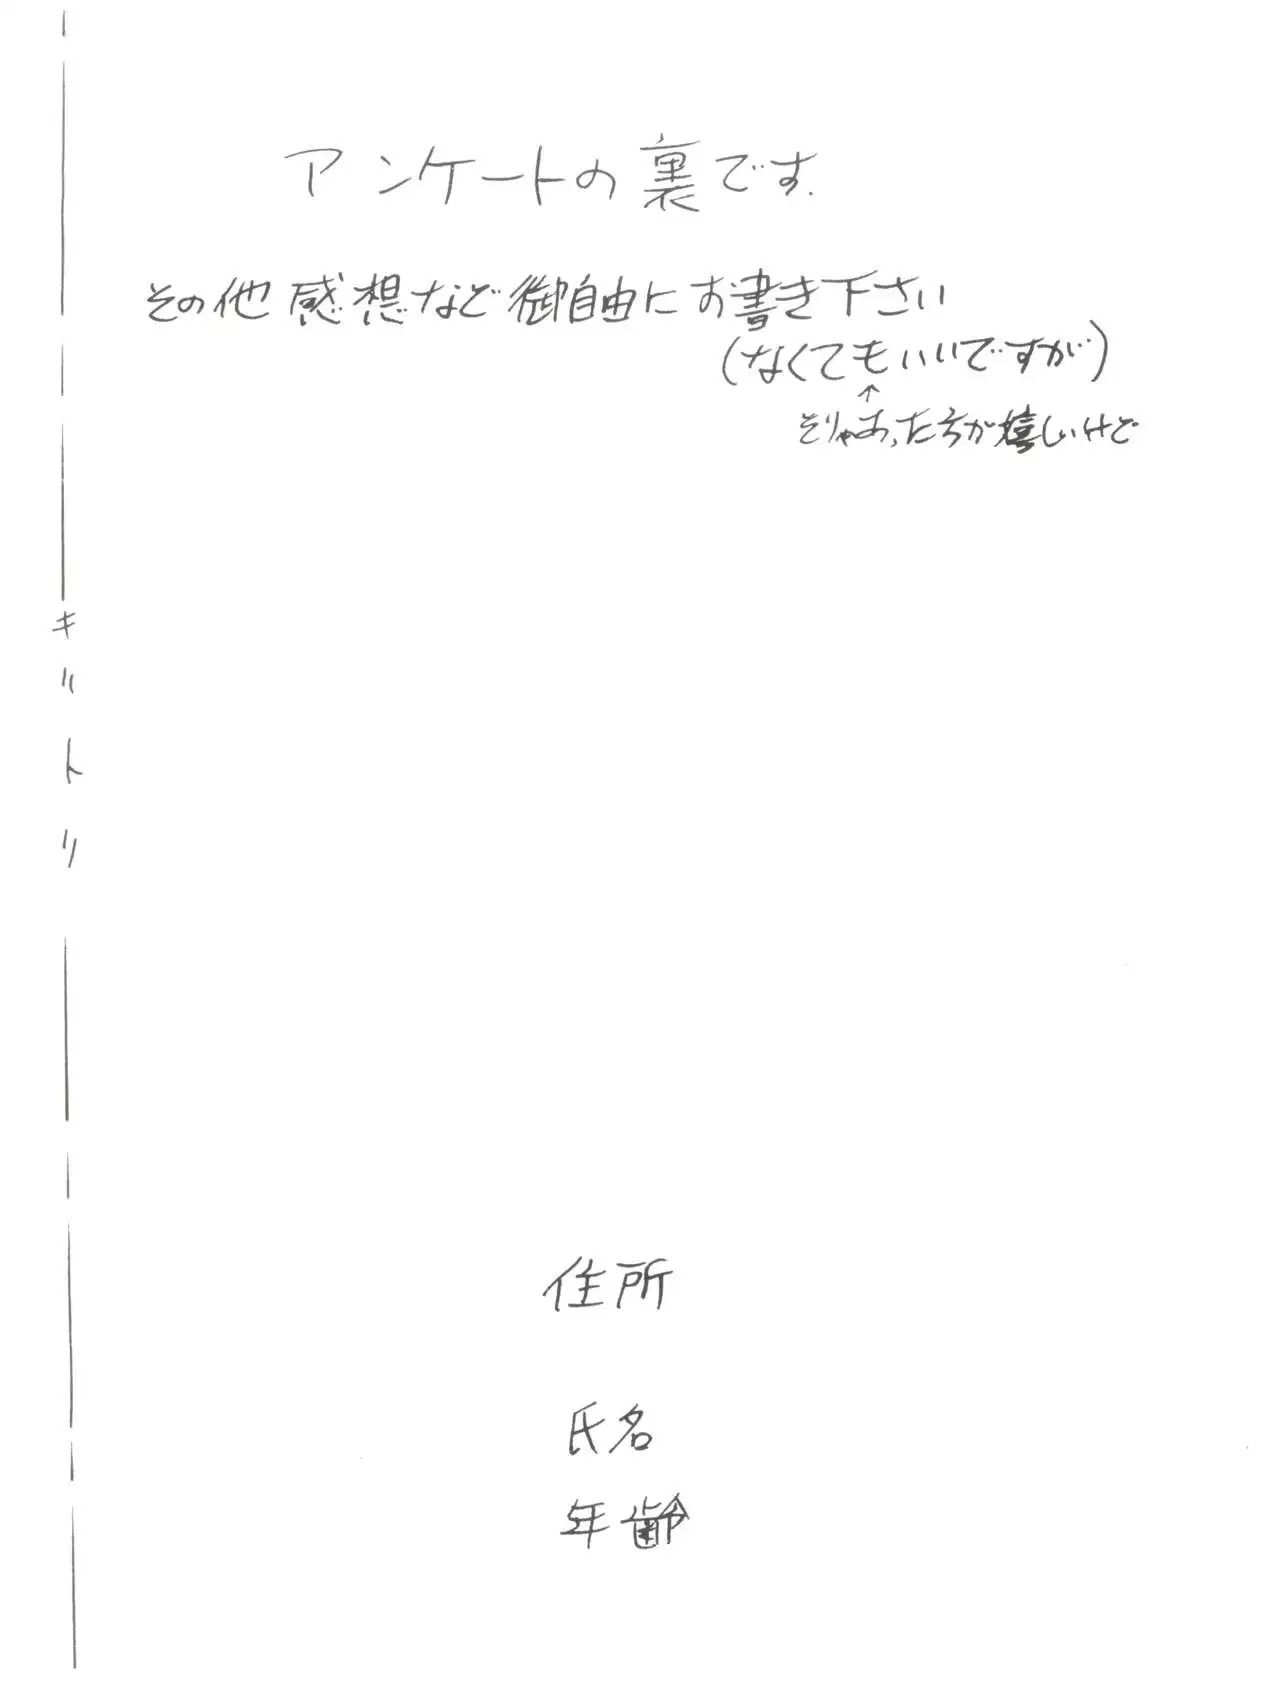 アンケートの裏です.
その他感想など御自由にお書き下さい
(なくてもいいですが)
↑
そりゃあった方が嬉しいけど
キリトリ
住所
氏名
年齢